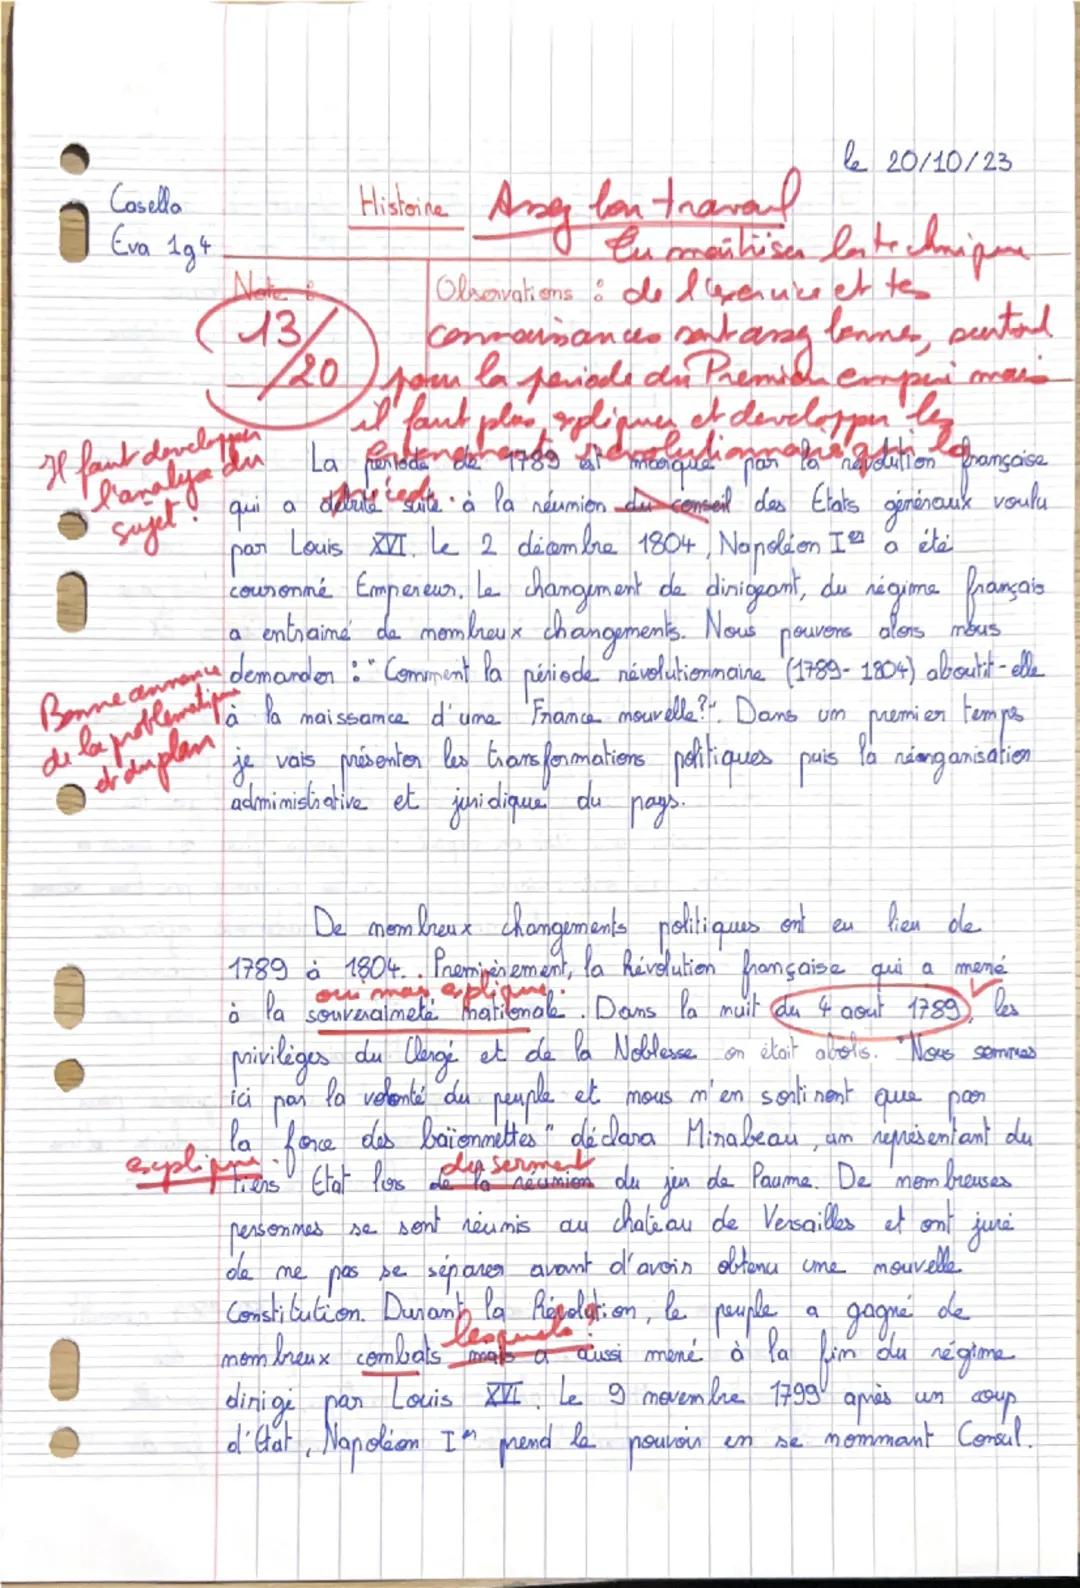 le 20/10/23
Casella
Eva 1g4
Histoire
Assez bon travail
Tu maîtrises la technique
Note :
13/20
Observations : de l'exercice et tes
connaissances sont assez bonnes, surtout
pour la période du Premier empire mais
il faut plus expliquer et developper les
évènements révolutionnaires qui le
précède.
Il faut developper
l'analyse du
sujet.
La periode de 1789 est marqué par la révolution française
qui a débuté suite à la réunion du conseil des États généraux voulu
par Louis XVI. Le 2 décembre 1804, Napoléon Ier a été
couronné Empereur. Le changement de dirigeant, du régime français
a entrainé de nombreux changements. Nous pouvons alors nous
demander : "Comment la période révolutionnaire (1789-1804) aboutit-elle
à la naissance d'une France nouvelle?". Dans un premier temps
je vais présenter les transformations politiques puis la réorganisation
administrative et juridique du pays.
Bonne annonce
de la problematique
et du plan
De nombreux changements politiques ont eu lieu de
1789 à 1804. Premièrement, la Révolution française qui a mené
oui mais explique.
à la souveraineté nationale. Dans la nuit du 4 aout 1789, les
privilèges du Clergé et de la Noblesse on était abolis. "Nous sommes
ici par la volonté du peuple et nous n'en sortiront que par
la force des baïonnettes" déclara Mirabeau, un représentant du
explique.
du serment
Tiers Etat lors de la réunion du jeu de Paume. De nombreuses
personnes se sont réunis au chateau de Versailles et ont juré
de ne pas se séparer avant d'avoir obtenu une nouvelle
Constitution. Durant la Révolution, le peuple a gagné de
lesquels ?
nombreux combats mais a aussi mené à la fin du régime
dirigé par Louis XVI. Le 9 novembre 1799 après un coup
d'Etat, Napoléon Ier prend le pouvoir en se nommant Consul.